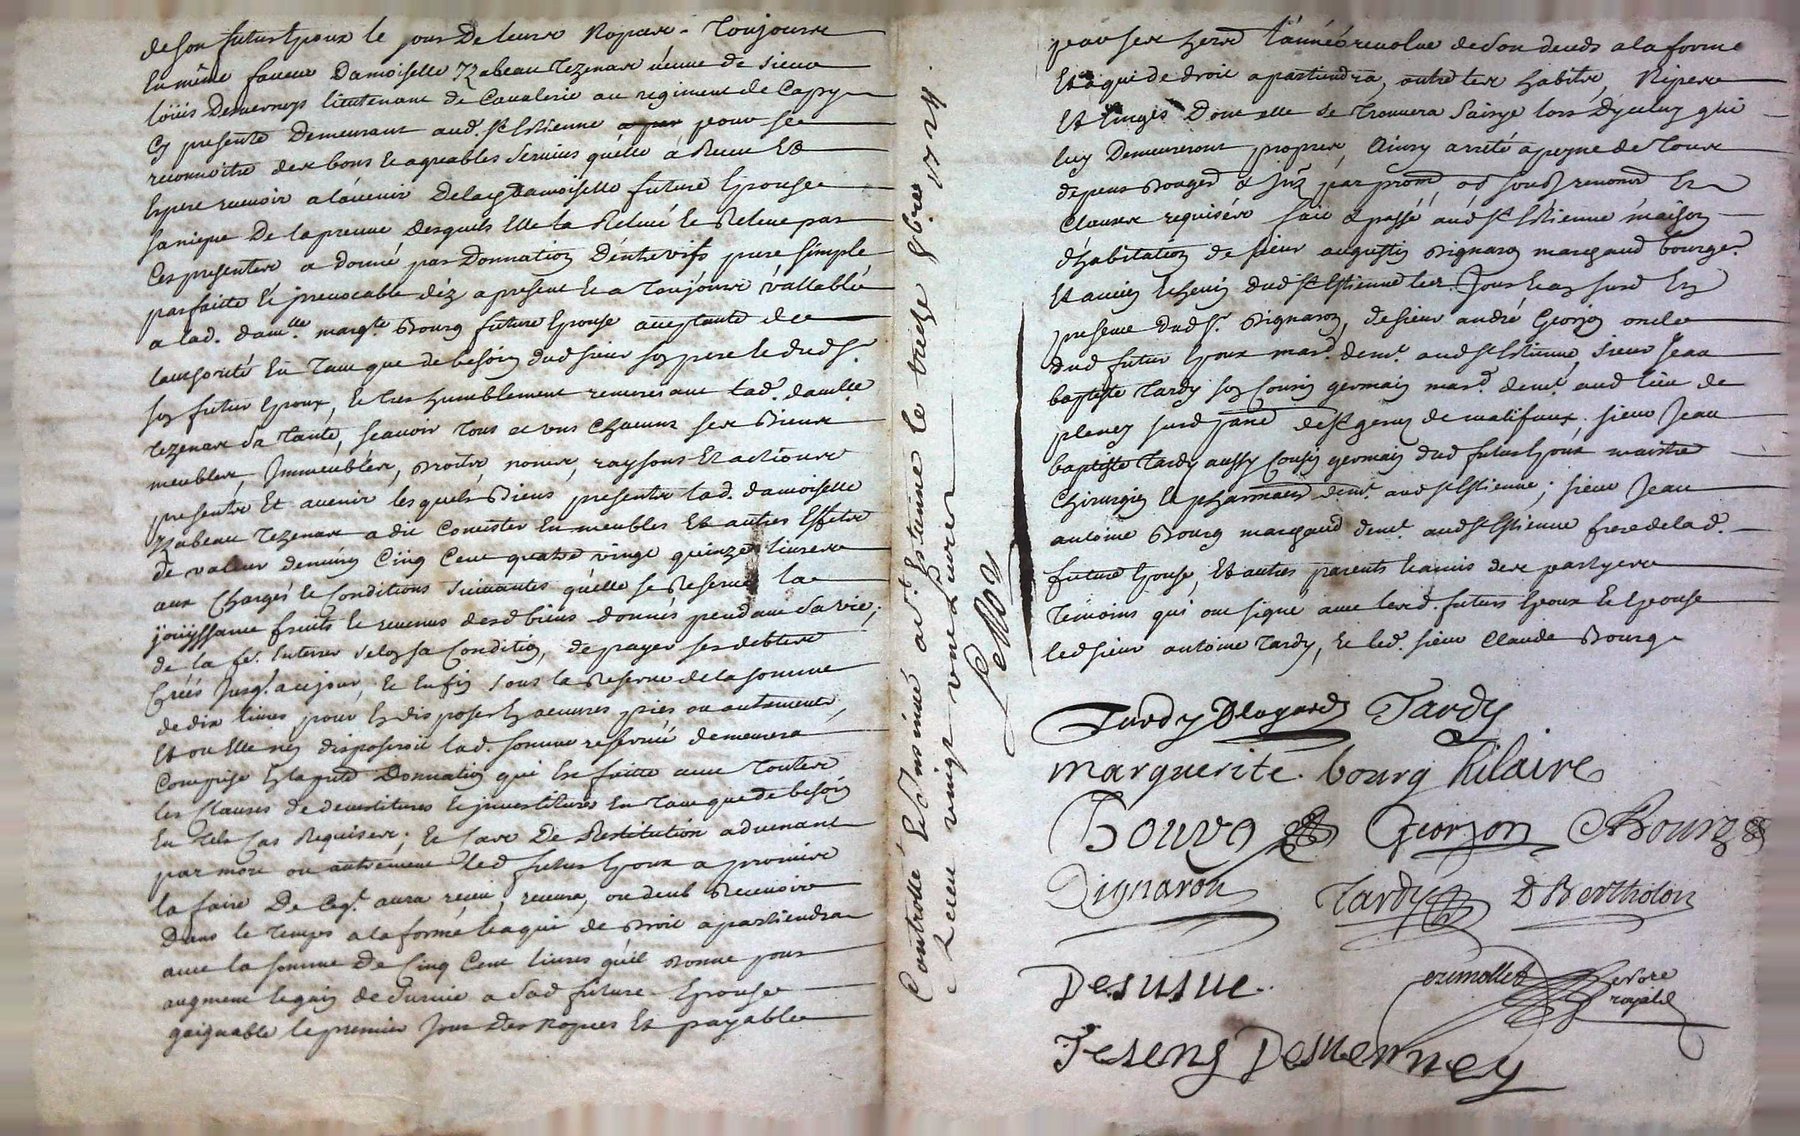 de son futur Epoux le jour De leurs Nopces. Toujours
En même faveur Damoiselle Izabeau Tezenas veuve de sieur
loüis Desverneys lieutenant de Cavalerie au regiment de
Cy presente Demeurant aud. St Estienne pour se
reconnoitre des bons & agreables services qu'elle a Receu Et
Espere recevoir a l'avenir De lad. Damoiselle future Epouse
sa niepce De la preuve desquels Elle la Relevé & Releve par
Ces presentes a donné par Donnation D'entrevifs pure simple
parfaitte & irrevocable déz apresent & a Toujours vallable
a lad. damlle. margte. Bourg future Epouse acceptante de
l'authorité En Tant que de besoin dud sieur son pere & dud Sr.
son futur Epoux, & tres humblement remerciant lad. damlle.
tezenas sa Tante, sçavoir Tous et uns Chacuns ses Biens
meubles, Immeubles, Droits, noms, raysons Et actions
presents Et avenir lesquels Biens presents lad. damoiselle
Izabeau Tezenas a dit Consister En meubles Et autres Effets
de valeur d'environ Cinq Cent quatre vingt quinze livres
aux Charges & Conditions suivantes qu'elle se Reserve la
joüyssance fruits & revenus desd biens donnés pendant sa vie;
de la fe. Enterrer selon sa Condition, de payer ses debtes
Créés jusq. aujour, & Enfin sous la Reserve de la somme
de dix livres pour En disposer En œuvres pies ou autrement,
Et ou Elle n'en disposeroit lad. somme reservée demeurera
Comprise En la pnte Donnation qui Est faitte avec Toutes
les Clauses de devestitures & jnvestitures En Tant que de besoin
En tels Cas Requises; & Cas De Restitution advenant
par mort ou autrement led futur Epoux a promis
la faire De Ceq. aura receu, recevra, ou deub Recevoir
Dans le Temps a la forme & a qui de Droit apartiendra
avec la somme De Cinq Cent livres qu'il Donne pour
augment & gain de survie a sad future Epouse
gaignable le premier Jour Des Nopces Et payable
Controllé & Insinué a St. Estienne le treize 8bre 1724.
Receu vingt une Livres
pour ses hers l'année revolue de son deceds a la forme
Et a qui de droit apartiendra, outre les habits,
Et linges Dont elle se Trouvera saisye lors D'yceluy qui
luy Demeureront propres, Ainsy arrêté a peyne de Tous
depens
Clauses requises fait & passé aud St Estienne maison
d'habitation de sieur augustin Dignaron marchand bourgs.
Et ancien Echevin dud St Estienne les Jour & an susd En
presence dud Sr. Dignaron, de sieur andré Georjon oncle
dud futur Epoux mard. demt. aud St Estienne, sieur Jean
baptiste Tardy son Cousin germain mard. demt. aud lieu de
pleney de St genes de malifaux, sieur Jean
baptiste Tardy aussy Cousin germain dud futur Epoux maistre
Chirurgien & demt. aud St Estienne; sieur Jean
antoine Bourg marchand demt. aud St Estienne frere de lad.
future Epouse, Et autres parents & amis des partyes
Temoins qui ont signe avec lesd. futurs Epoux & Epouse
led sieur antoine Tardy, & led. sieur Claude Bourg.
Tardy
marguerite bourg hilaire
Bourg Georjon Bourg
Dignaron Tardy D Bertholon
Desusue.
royal
Tesenas Desuerney